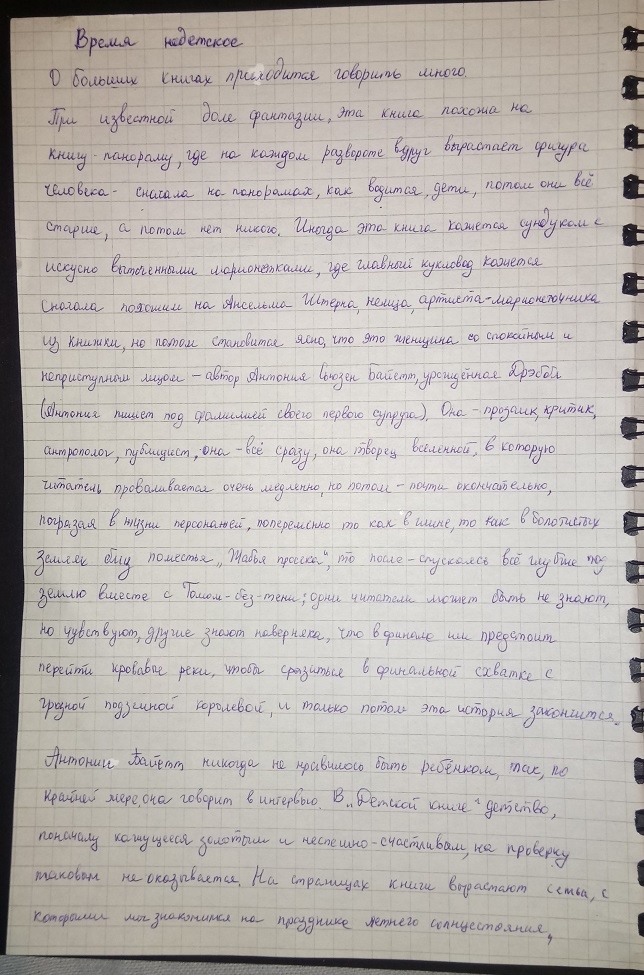 Время недетское
О больших книгах приходится говорить много.
При известной доле фантазии, эта книга похожа на
книгу-панораму, где на каждом развороте вдруг вырастает фигура
человека - сначала на панорамах, как водится, дети, потом они всё
старше, а потом нет никого. Иногда эта книга кажется сундуком с
искусно выточенными марионетками, где главный кукловод кажется
сначала похожим на Ансельма Штерна, немца, артиста-марионеточника
из книжки, но потом становится ясно, что это женщина со спокойным и
неприступным лицом - автор Антония Сьюзен Байетт, урождённая Дрэббл
(Антония пишет под фамилией своего первого супруга). Она - прозаик, критик,
антрополог, публицист, она - всё сразу, она творец вселенной, в которую
читатель проваливается очень медленно, но потом - почти окончательно,
погрязая в жизни персонажей, попеременно то как в глине, то как в болотистых
землях близ поместья „Жабья просека", то после - спускаясь всё глубже под
землю вместе с Томом-без-тени; одни читатели может быть не знают,
но чувствуют, другие знают наверняка, что в финале им предстоит
перейти кровавые реки, чтобы сразиться в финальной схватке с
грозной подземной королевой, и только потом эта история закончится.
Антонии Байетт никогда не нравилось быть ребёнком, так, по
крайней мере, она говорит в интервью. В „Детской книге" детство,
поначалу кажущееся золотым и неспешно-счастливым, на проверку
таковым не оказывается. На страницах книги вырастают семьи, с
которыми мы знакомимся на празднике летнего солнцестояния,